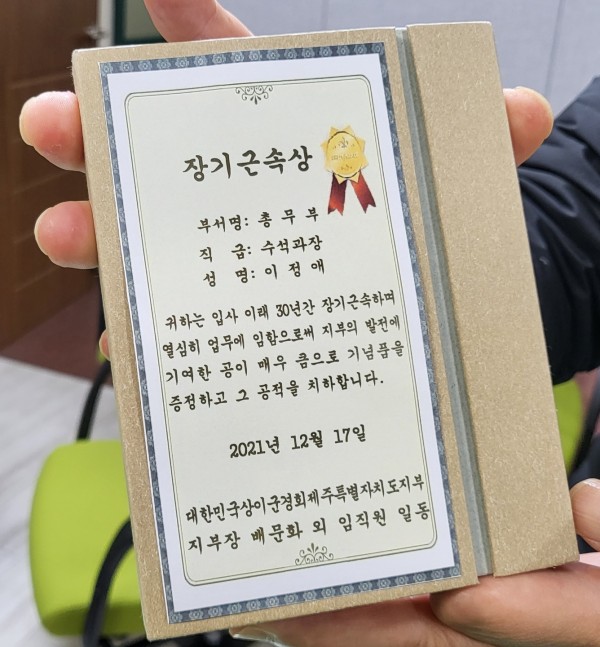 장기근속상
부서명: 총 무 부
직 급: 수석과장
성 명: 이 정 애
귀하는 입사 이래 30년간 장기근속하며
열심히 업무에 임함으로써 지부의 발전에
기여한 공이 매우 큼으로 기념품을
증정하고 그 공적을 치하합니다.
2021년 12월 17일
대한민국상이군경회제주특별자치도지부
지부장 배문화 외 임직원 일동